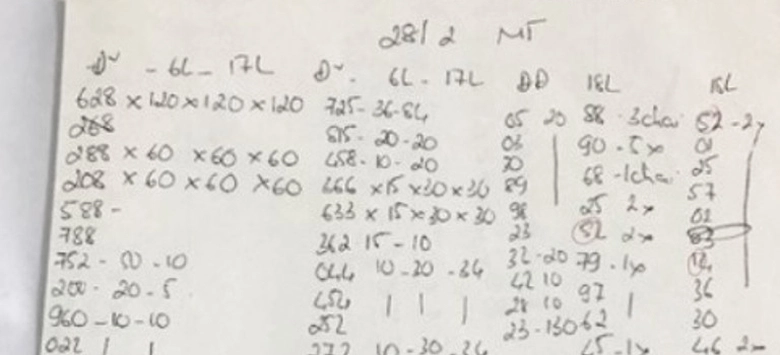 28/2 MT
Đ~ - 6L - 17L
628 x 120 x 120 x 120
268
288 x 60 x 60 x 60
208 x 60 x 60 x 60
588 -
788
752 - 50 - 10
200 - 20 - 5
960 - 10 - 10
022 | |
Đ~ - 6L - 17L
725 - 36 - 84
515 - 20 - 20
458 - 10 - 20
466 x 15 x 30 x 30
633 x 15 x 30 x 30
362 15 - 10
044 10 - 20 - 34
454 | | |
252
272 10 - 30 - 34
DD
05 20
03
70
89
98
23
32 - 20
42 10
28 10
23 - 130
18L
88 - 3chai
90 - 5x
68 - 1chai
25 2x
52 2x
79 - 1x
97 |
62
45 - 1x
18L
52 - 2x
01
25
57
02
12
36
30
46 2x